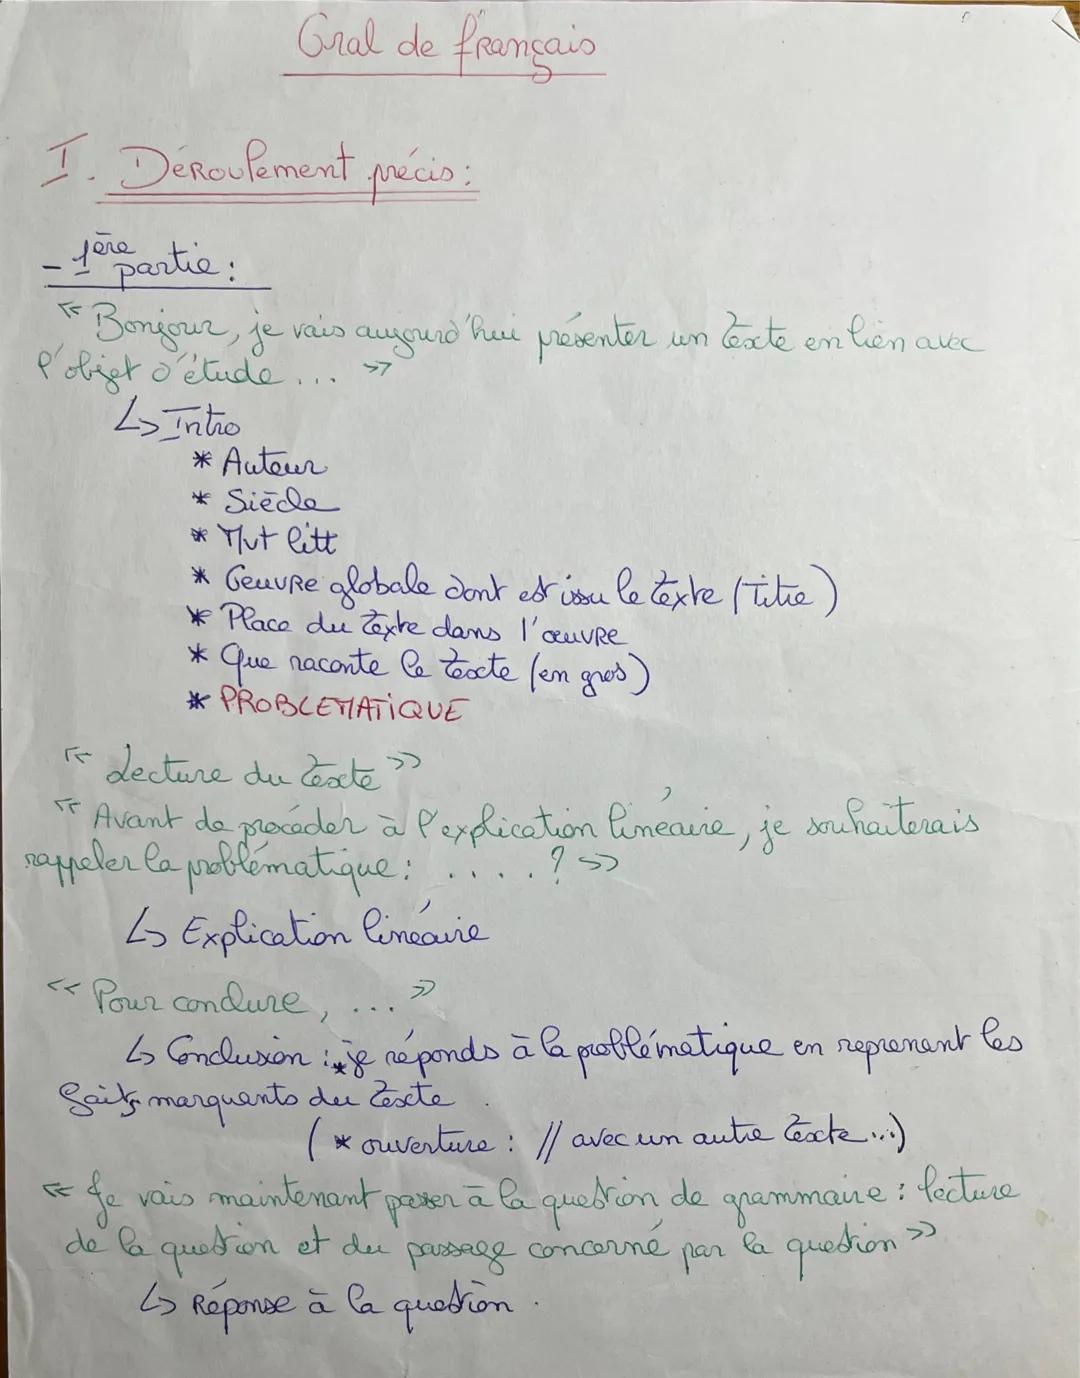 Oral de français
I. Déroulement précis :
- 1ère partie :
« Bonjour, je vais aujourd'hui présenter un texte en lien avec
l'objet d'étude ... »
↳ Intro
* Auteur
* Siècle
* Mvt litt
* Oeuvre globale dont est issu le texte (Titre)
* Place du texte dans l'œuvre
* Que raconte le texte (en gros)
* PROBLEMATIQUE
« Lecture du texte »
« Avant de procéder à l'explication linéaire, je souhaiterais
rappeler la problématique : .....? »
↳ Explication linéaire
« Pour conclure, ... »
↳ Conclusion : * je réponds à la problématique en reprenant les
faits marquants du texte.
( * ouverture : // avec un autre texte ...)
« Je vais maintenant passer à la question de grammaire : lecture
de la question et du passage concerné par la question »
↳ Réponse à la question.